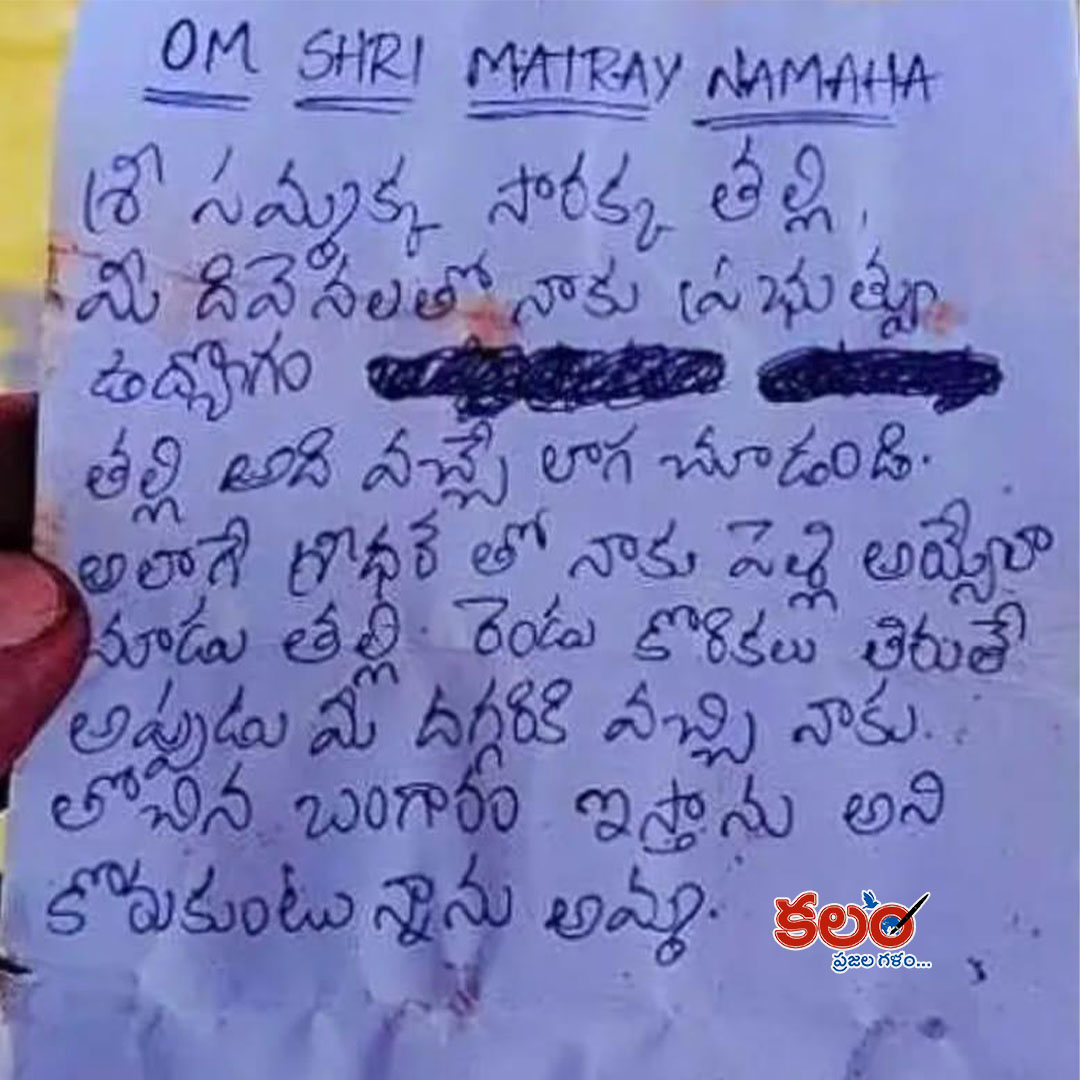 OM SHRI MATRAY NAMAHA
శ్రీ సమ్మక్క సారక్క తల్లి,
మీ దివెనలతో నాకు ప్రభుత్వ
ఉద్యోగం
తల్లి అది వచ్చే లాగ చూడండి.
అలాగే గ్రొధరే తో నాకు పెళ్లి అయ్యేలా
చూడు తల్లి. రెండు కొరికలు తిరుతే
అప్పుడు మీ దగ్గరికి వచ్చి నాకు..
తోచిన బంగారం ఇస్తాను అని
కొరుకుంటున్నాను అమ్మ.
కలం
ప్రజల గళం...